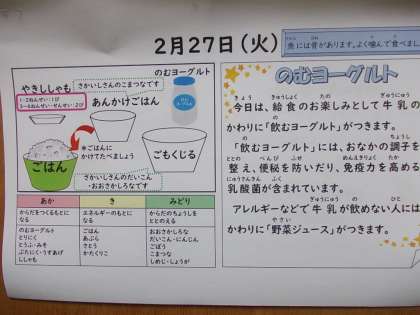 2月27日（火）
魚には骨があります。よく噛んで食べまし
のむヨーグルト
やきししゃも
1・2ねんせい：1び
3～6ねんせい・せんせい：2び
さかいしさんのこまつなです
あんかけごはん
ヨーグルト
★ごはんに
かけてたべましょう
ごはん
ごもくじる
さかいしさんのだいこん
・おおさかしろなです
あか
き
みどり
からだをつくるもとに
なる
エネルギーのもとに
なる
からだのちょうしを
ととのえる
のむヨーグルト
とりにく
とうふ・みそ
ぶたにく・うすあげ
ししゃも
ごはん
あぶら
さとう
かたくりこ
おおさかしろな
だいこん・にんじん
ごぼう
こまつな
しめじ・しょうが
のむヨーグルト
今日は、給食のお楽しみとして牛乳の
かわりに「飲むヨーグルト」がつきます。
「飲むヨーグルト」には、おなかの調子を
整え、便秘を防いだり、免疫力を高める
乳酸菌が含まれています。
アレルギーなどで牛乳が飲めない人には
かわりに「野菜ジュース」がつきます。